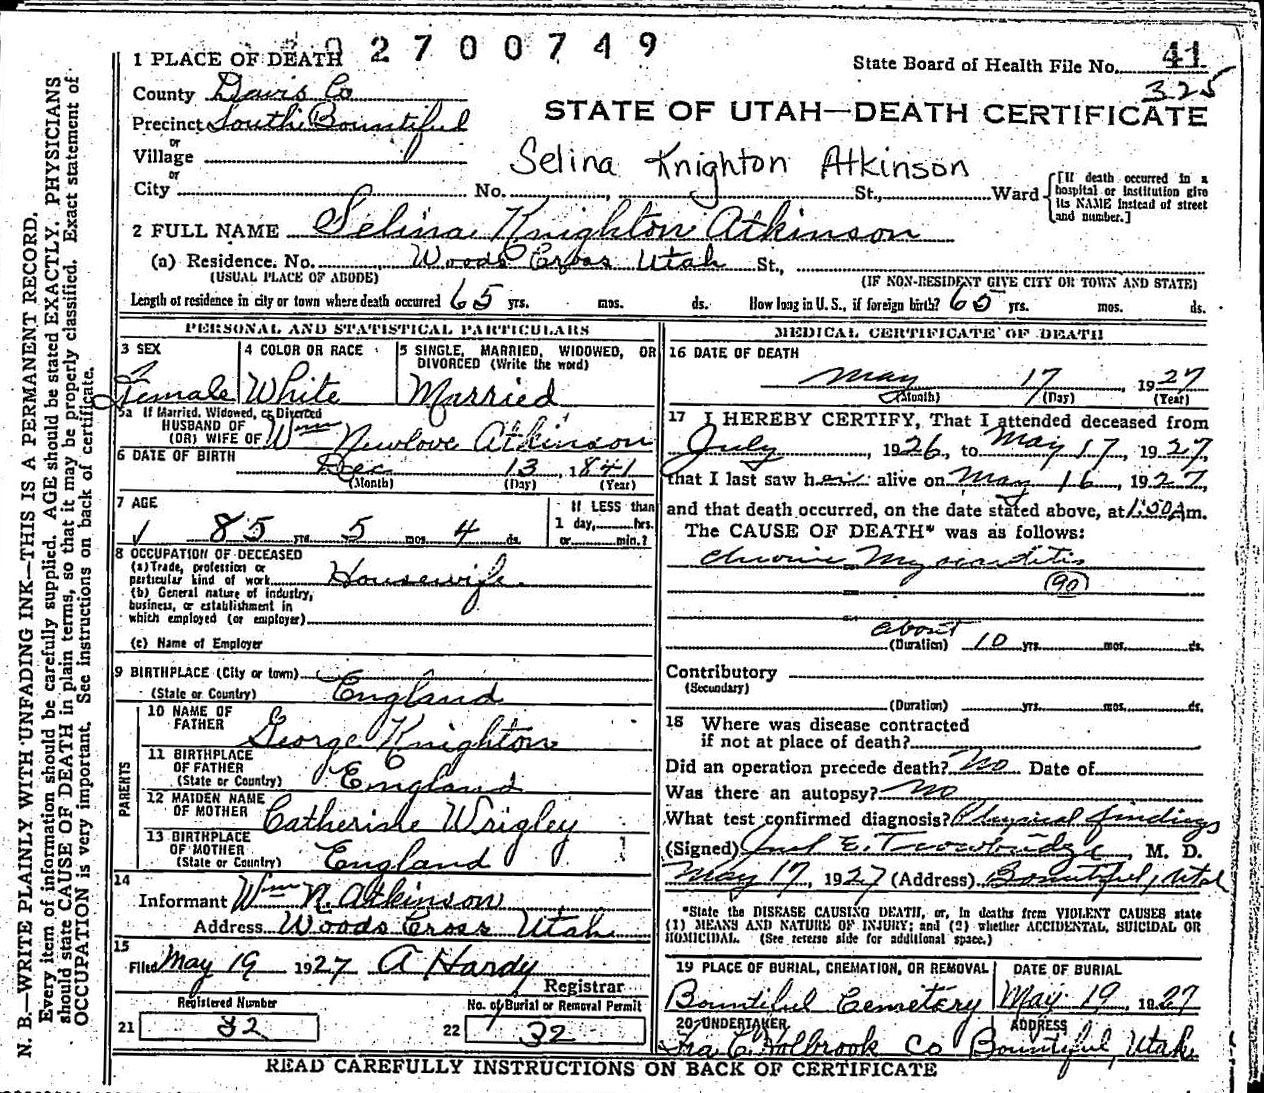 2700749
1 PLACE OF DEATH
State Board of Health File No. 41
325
County Davis Co
STATE OF UTAH—DEATH CERTIFICATE
Precinct South Bountiful
or
Village
Selina Knighton Atkinson
or
City No. St., Ward
[If death occurred in a hospital or institution give its NAME instead of street and number.]
2 FULL NAME Selina Knighton Atkinson
(a) Residence. No. Woods Cross Utah St.,
(USUAL PLACE OF ABODE) (IF NON-RESIDENT GIVE CITY OR TOWN AND STATE)
Length of residence in city or town where death occurred 65 yrs. mos. ds. How long in U. S., if foreign birth? 65 yrs. mos. ds.
PERSONAL AND STATISTICAL PARTICULARS
3 SEX
Female
4 COLOR OR RACE
White
5 SINGLE, MARRIED, WIDOWED, OR DIVORCED (Write the word)
Married
5a If Married, Widowed, or Divorced
HUSBAND OF
(OR) WIFE OF Wm Newlove Atkinson
6 DATE OF BIRTH
Dec 13 1841
(Month) (Day) (Year)
7 AGE
85 yrs. 5 mos. 4 ds.
If LESS than
1 day, hrs.
or min.?
8 OCCUPATION OF DECEASED
(a) Trade, profession or
particular kind of work Housewife
(b) General nature of industry,
business, or establishment in
which employed (or employer)
(c) Name of Employer
9 BIRTHPLACE (City or town)
(State or Country) England
PARENTS
10 NAME OF
FATHER George Knighton
11 BIRTHPLACE
OF FATHER
(State or Country) England
12 MAIDEN NAME
OF MOTHER Catherine Wrigley
13 BIRTHPLACE
OF MOTHER
(State or Country) England
14
Informant Wm N. Atkinson
Address Woods Cross Utah
15
Filed May 19 1927 A Hardy
Registrar
Registered Number
21 32
No. of Burial or Removal Permit
22 32
MEDICAL CERTIFICATE OF DEATH
16 DATE OF DEATH
May 17, 1927
(Month) (Day) (Year)
17 I HEREBY CERTIFY, That I attended deceased from
July, 1926, to May 17, 1927,
that I last saw her alive on May 16, 1927,
and that death occurred, on the date stated above, at 1:50 A m.
The CAUSE OF DEATH* was as follows:
Chronic Myocarditis
(90)
about
(Duration) 10 yrs. mos. ds.
Contributory
(Secondary)
(Duration) yrs. mos. ds.
18 Where was disease contracted
if not at place of death?
Did an operation precede death? No Date of
Was there an autopsy? No
What test confirmed diagnosis? Physical findings
(Signed) E. Trowbridge M. D.
May 17, 1927 (Address) Bountiful, Utah
*State the DISEASE CAUSING DEATH, or, in deaths from VIOLENT CAUSES state
(1) MEANS AND NATURE OF INJURY; and (2) whether ACCIDENTAL, SUICIDAL OR
HOMICIDAL. (See reverse side for additional space.)
19 PLACE OF BURIAL, CREMATION, OR REMOVAL
Bountiful Cemetery
DATE OF BURIAL
May 19, 1927
20 UNDERTAKER ADDRESS
Ira C. Holbrook Co Bountiful, Utah
READ CAREFULLY INSTRUCTIONS ON BACK OF CERTIFICATE
N. B.—WRITE PLAINLY WITH UNFADING INK—THIS IS A PERMANENT RECORD.
Every item of information should be carefully supplied. AGE should be stated EXACTLY. PHYSICIANS
should state CAUSE OF DEATH in plain terms, so that it may be properly classified. Exact statement of
OCCUPATION is very important. See instructions on back of certificate.